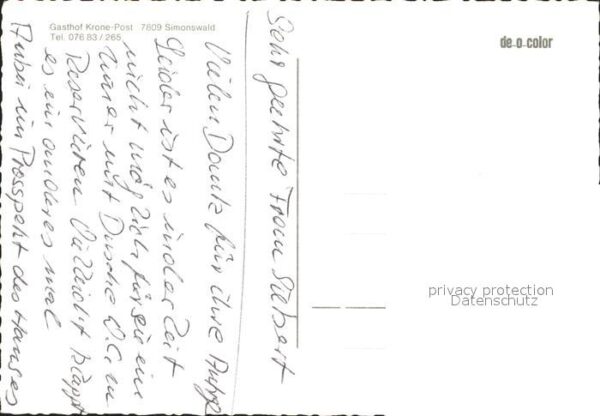 Gasthof Krone-Post 7809 Simonswald
Tel. 076 83 / 265
de-o-color
Sehr geehrte Frau Sibert
Vielen Dank für ihre Anfrg
Leider ist es in der Zeit
nicht möglich für sie ein
Zimmer mit Dusche W.C. zu
Reservieren Vielleicht klappt
es ein anderes mal
Anbei ein Prospekt des Hauses
privacy protection
Datenschutz